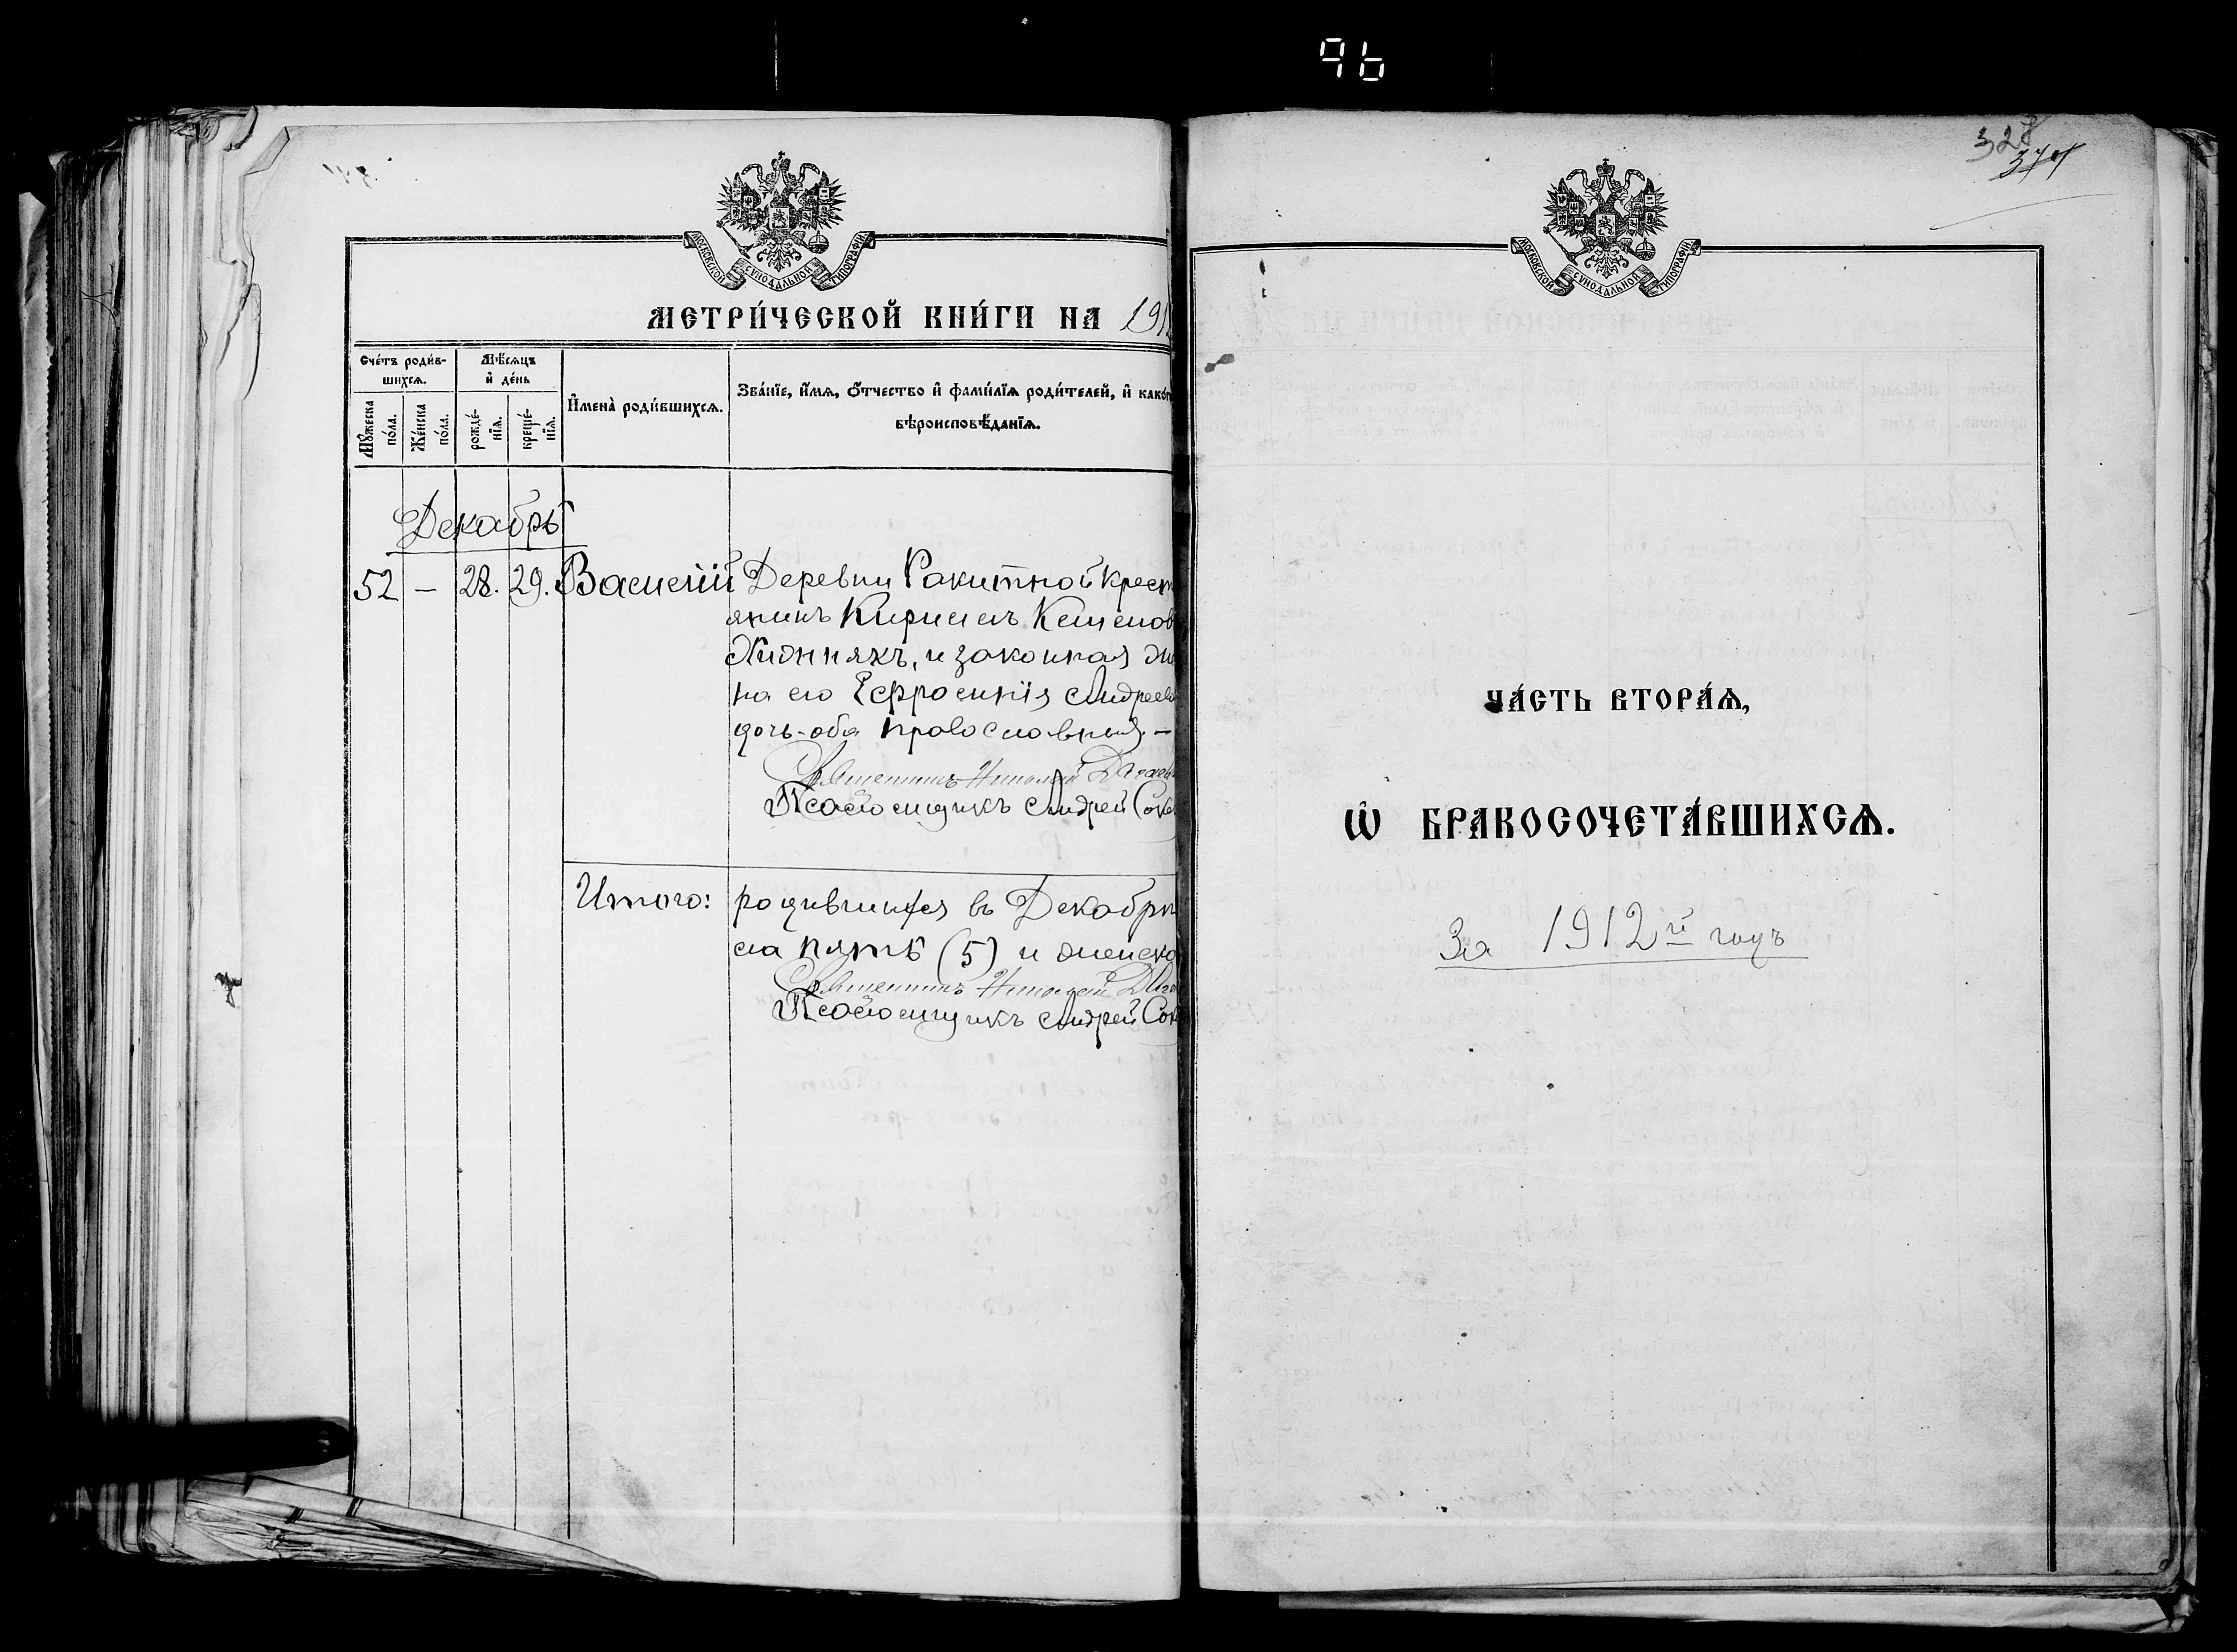 96
МОСКОВСКОЙ СУНОДАЛЬНОЙ ТИПОГРАФІИ
МЕТРИ́ЧЕСКОЙ КНИ́ГИ НА 191
Сче́тъ роди́в-
шихсѧ.
Мѣ́сѧцъ
и҆ де́нь
Мꙋ́жеска по́ла.
Же́нска по́ла.
рожде́-
нїѧ.
креще́-
нїѧ.
И҆мена̀ роди́вшихсѧ.
Зва́нїе, и҆́мѧ, ѻ҆́тчество и҆ фами́лїѧ роди́телей, и҆ како́г
вѣроисповѣ́данїѧ.
Декабрь
52 — 28. 29. Василій Деревни Ракитной крест
янинъ Кирилъ
и законная жо
на его Ефросинія Андреев
дочь-оба православныя. —
Священникъ Николай
Псаломщикъ Андрей Соко
Итого: родившихся въ Декабрѣ
ла пять (5) и женско
Священникъ Николай
Псаломщикъ Андрей Сок
328
374
МОСКОВСКОЙ СУНОДАЛЬНОЙ ТИПОГРАФІИ
ЧА́СТЬ ВТОРА́Ѧ,
Ѡ҆ БРАКОСОЧЕТА́ВШИХСѦ.
За 1912й годъ